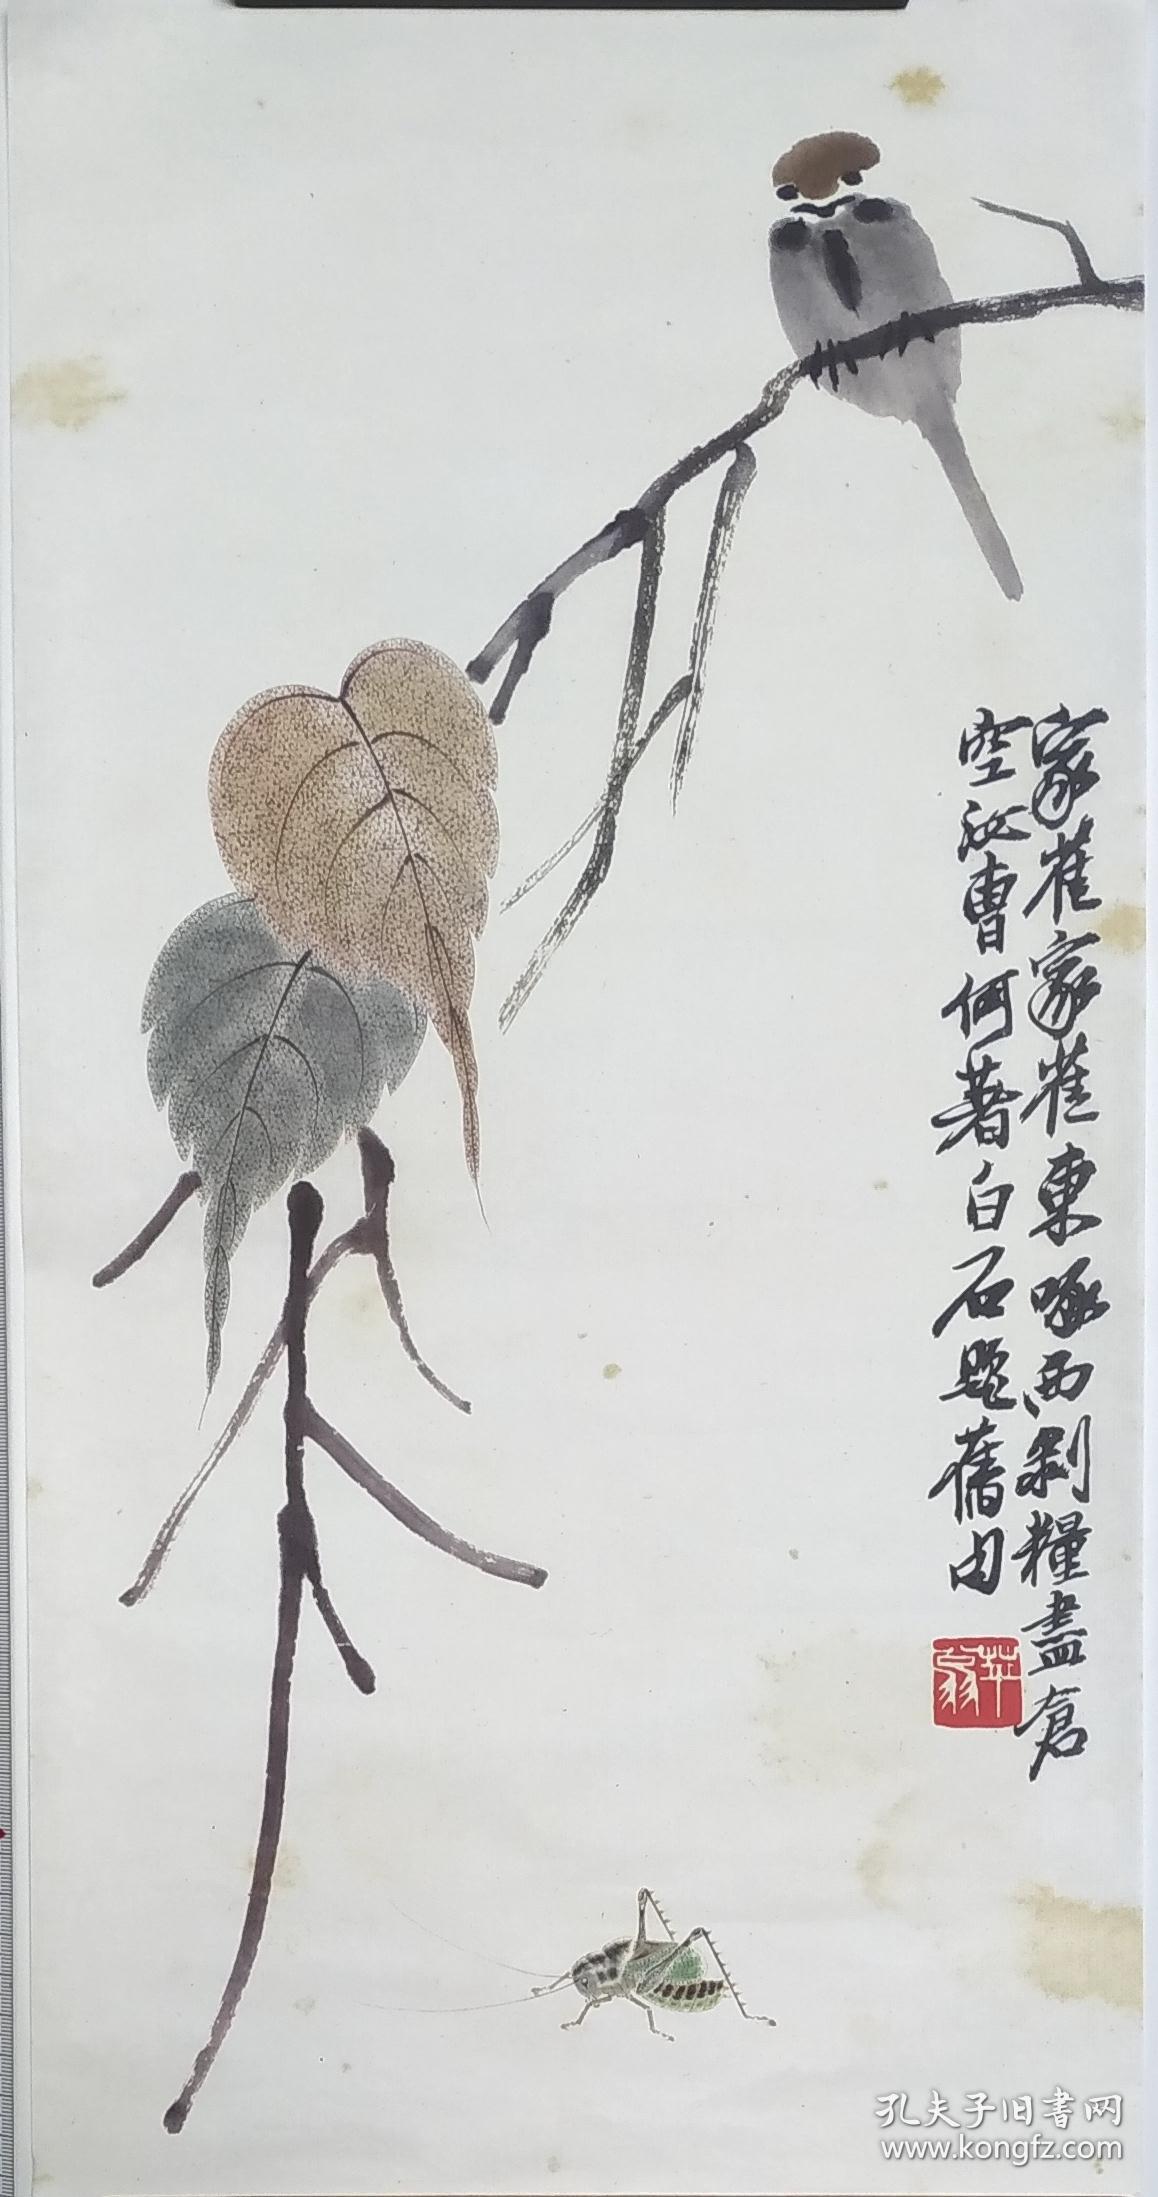 家雀家雀東啄西剝糧盡倉
空汝曹何著白石題舊句
萍翁
孔夫子旧書网
www.kongfz.com